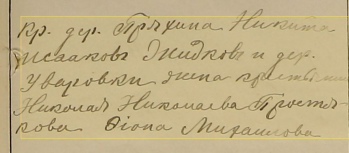 Кр. дер. Пряхина Никита
Исааковъ Жидковъ и дер.
Уваровки жена крестьянина
Николая Николаева Простя-
кова Фіона Михаилова